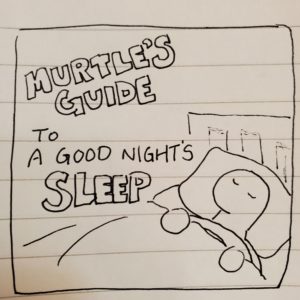 MURTLE'S
GUIDE
TO
A GOOD NIGHT'S
SLEEP